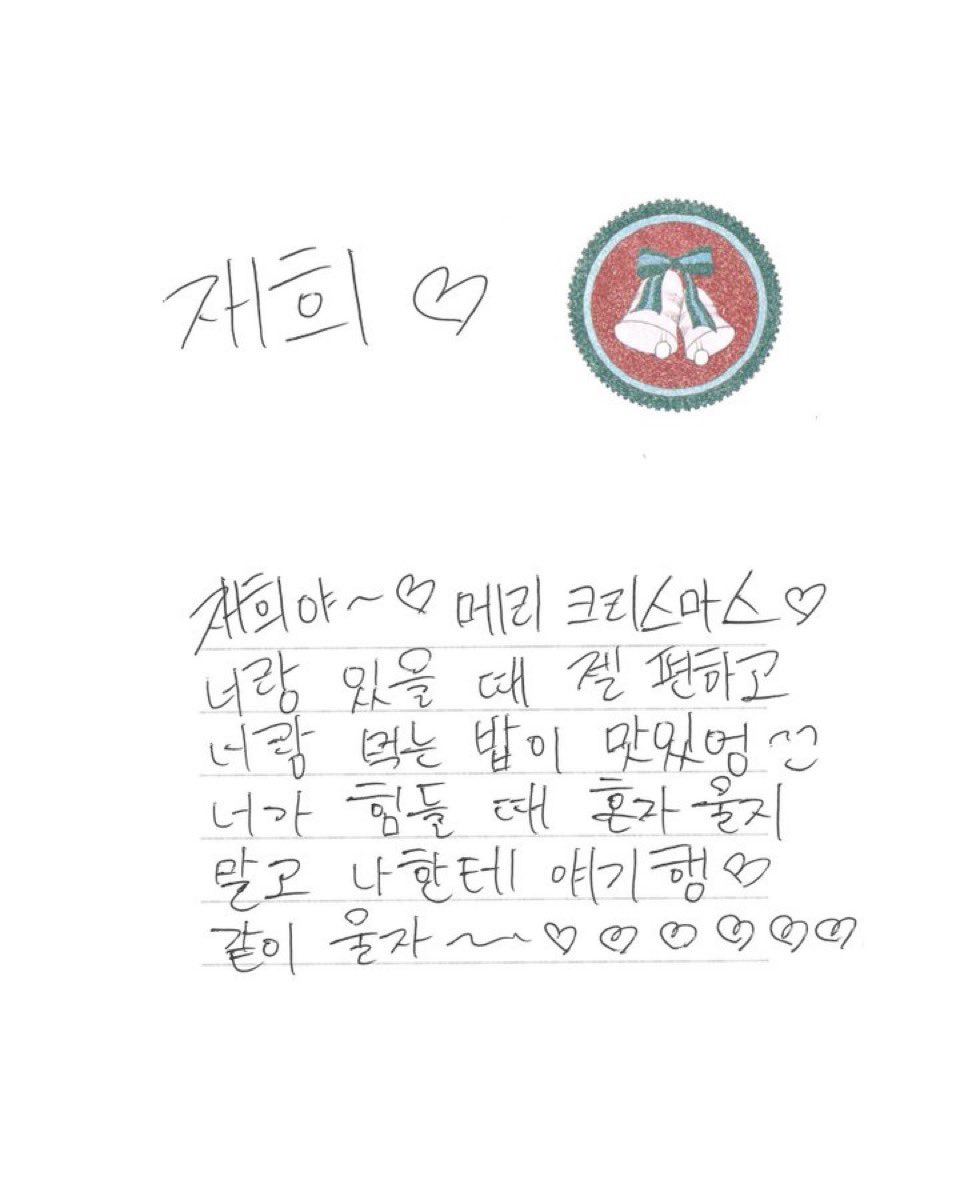 재희 ♡
재희야~♡ 메리 크리스마스♡
너랑 있을 때 젤 편하고
너랑 먹는 밥이 맛있엉 ^^
너가 힘들 때 혼자 울지
말고 나한테 얘기행♡
같이 울자~~♡♡♡♡♡♡